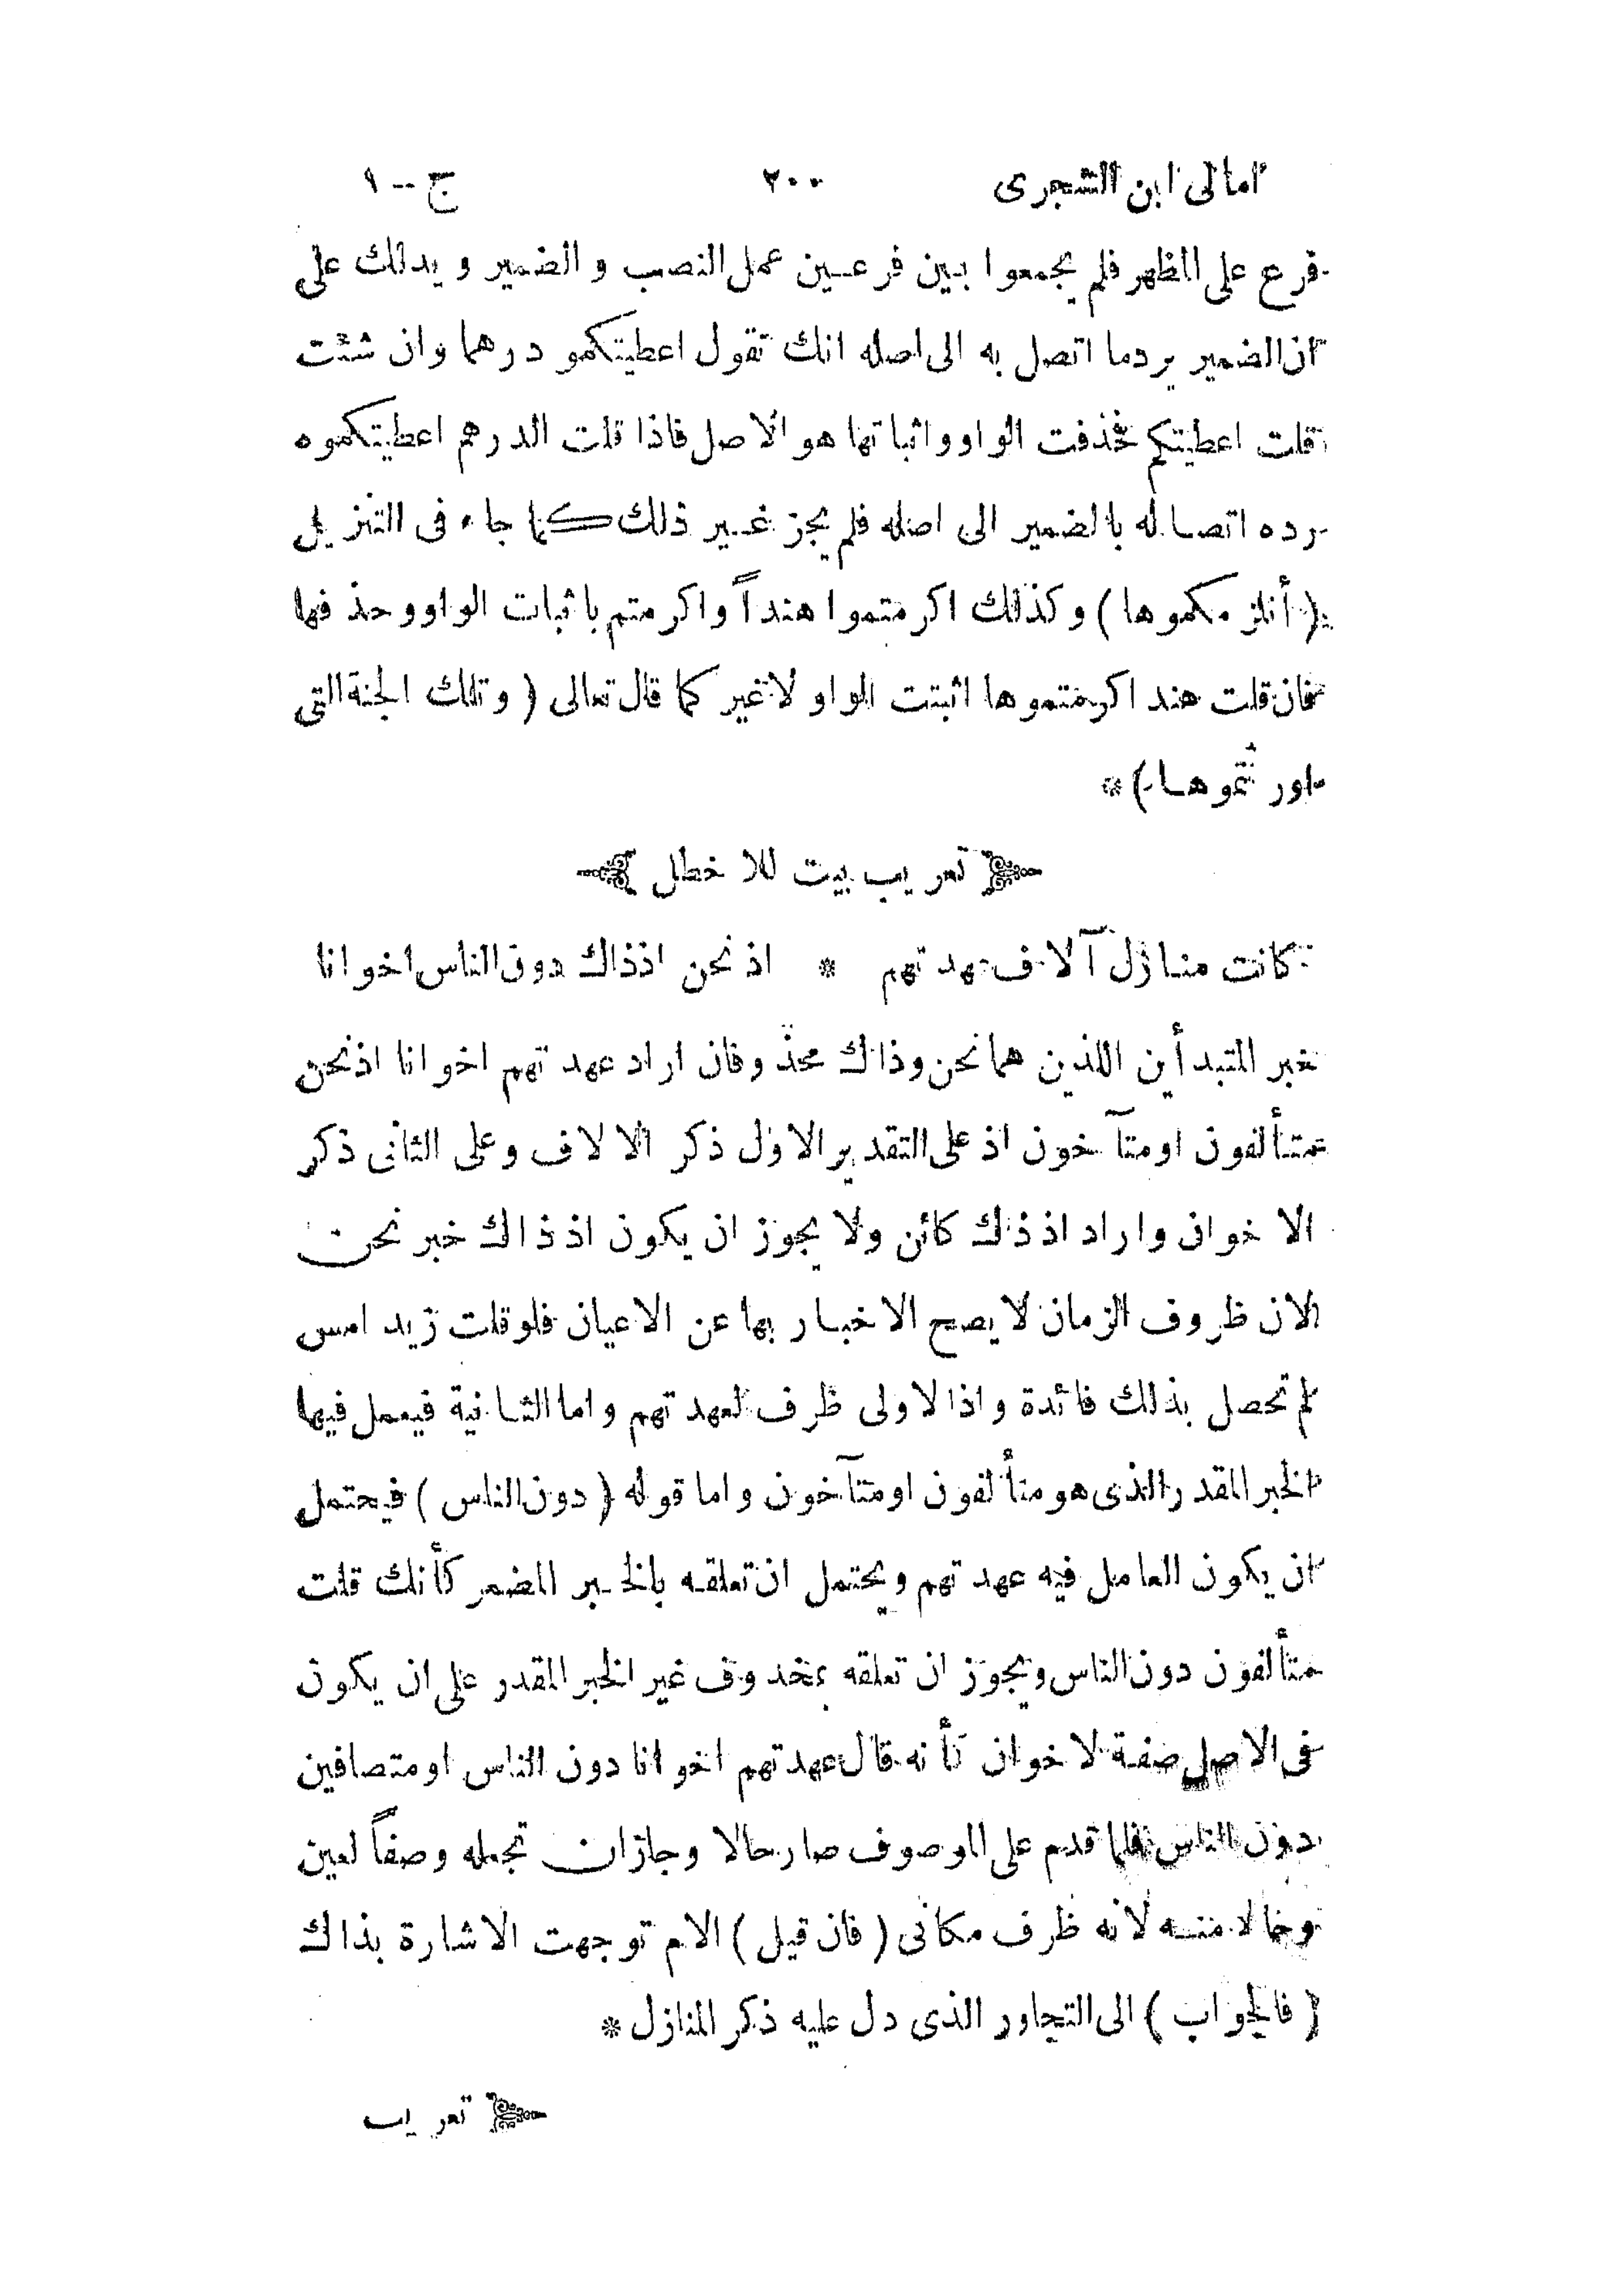 امالى ابن الشجرى ٢٠٠ ج--١
فرع على المظهر فلم يجمعوا بين فرعين عمل النصب والضمير ويدلك على
ان الضمير يرد ما اتصل به الى اصله انك تقول اعطيتكمو درهما وان شئت
قلت اعطيتكم فحذفت الواو واثباتها هو الاصل فاذا قلت الدرهم اعطيتكموه
رده اتصاله بالضمير الى اصله فلم يجز غير ذلك كما جاء فى التنزيل
(أنلزمكموها) وكذلك اكرمتموا هنداً واكرمتم باثبات الواو وحذفها
فان قلت هند اكرمتموها اثبتت الواو لا غير كما قال تعالى (وتلك الجنة التى
اورثتموها) *
تعريب بيت للاخطل
كانت منازل آلاف عهدتهم * اذ نحن اذ ذاك دون الناس اخوانا
خبر المتبدأين اللذين هما نحن وذاك محذوفان اراد عهدتهم اخوانا اذ نحن
متألفون او متآخون اذ على التقدير الاول ذكر الالاف وعلى الثانى ذكر
الاخوان واراد اذ ذاك كائن ولا يجوز ان يكون اذ ذاك خبر نحن
لان ظروف الزمان لا يصح الاخبار بها عن الاعيان فلو قلت زيد امس
لم تحصل بذلك فائدة واذ الاولى ظرف لعهدتهم واما الثانية فيعمل فيها
الخبر المقدر الذى هو متألفون او متآخون واما قوله (دون الناس) فيحتمل
ان يكون العامل فيه عهدتهم ويحتمل ان تعلقه بالخبر المضمر كأنك قلت
متألفون دون الناس ويجوز ان تعلقه بمحذوف غير الخبر المقدر على ان يكون
فى الاصل صفة لاخوان كأنه قال عهدتهم اخوانا دون الناس او متصافين
دون الناس فلما قدم على الموصوف صار حالا وجاز ان تجعله وصفاً لعين
وحالا منه لانه ظرف مكانى (فان قيل) الام توجهت الاشارة بذاك
(فالجواب) الى التجاور الذى دل عليه ذكر المنازل *
تعريب